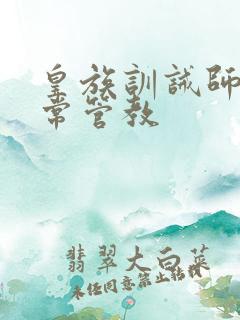 皇族訓誡師
常管教
翡翠大白菜
未任同意禁止轉載